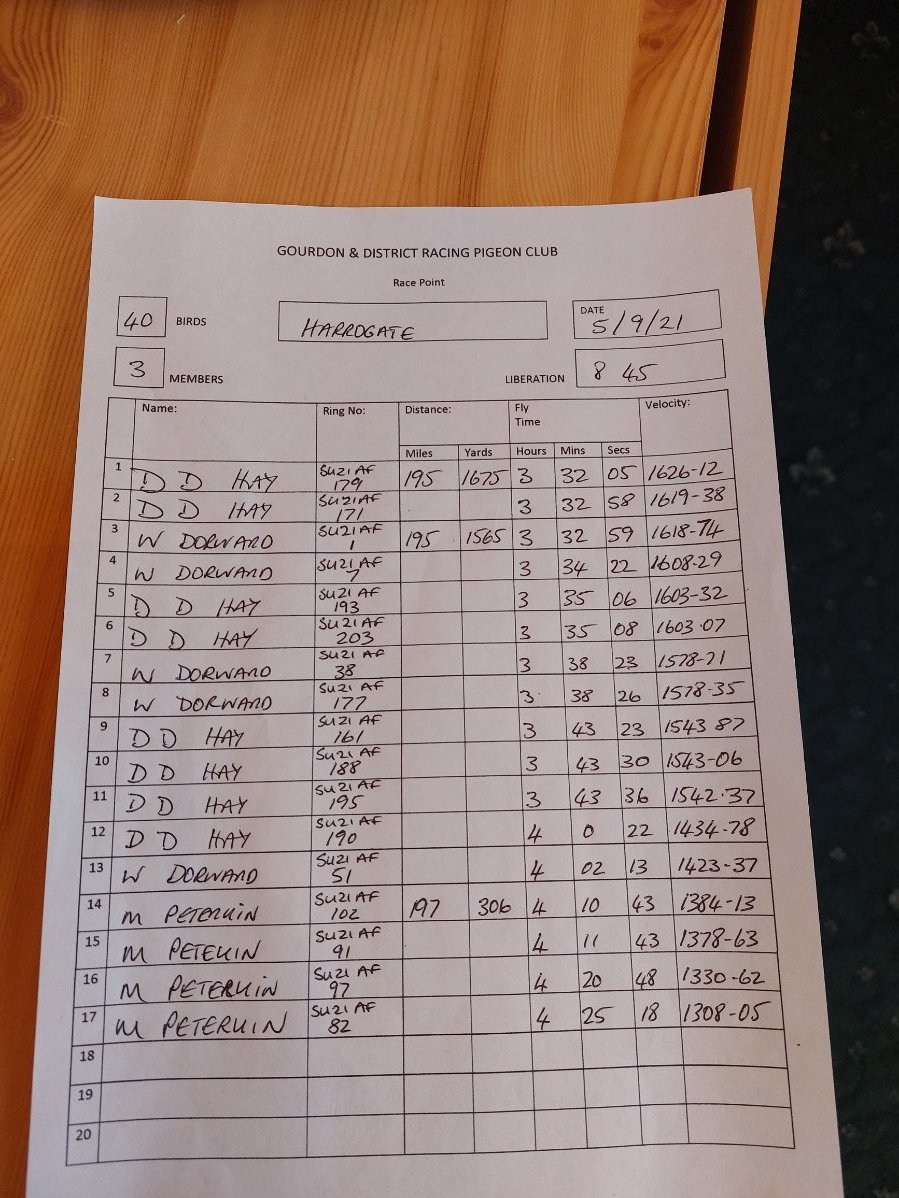 GOURDON & DISTRICT RACING PIGEON CLUB
Race Point
40 BIRDS HARROGATE DATE 5/9/21
3 MEMBERS LIBERATION 8 45
Name: Ring No: Distance: Fly Time Velocity:
Miles Yards Hours Mins Secs
1 D D HAY SU21AF 179 195 1675 3 32 05 1626-12
2 D D HAY SU21AF 171 3 32 58 1619-38
3 W DORWARD SU21AF 1 195 1565 3 32 59 1618-74
4 W DORWARD SU21AF 7 3 34 22 1608-29
5 D D HAY SU21 AF 193 3 35 06 1603-32
6 D D HAY SU21AF 203 3 35 08 1603.07
7 W DORWARD SU21 AF 38 3 38 23 1578-71
8 W DORWARD SU21 AF 177 3 38 26 1578-35
9 D D HAY SU21 AF 161 3 43 23 1543 87
10 D D HAY SU21 AF 188 3 43 30 1543-06
11 D D HAY SU21 AF 195 3 43 36 1542.37
12 D D HAY SU21 AF 190 4 0 22 1434-78
13 W DORWARD SU21 AF 51 4 02 13 1423-37
14 M PETERKIN SU21 AF 102 197 306 4 10 43 1384-13
15 M PETEKIN SU21 AF 91 4 11 43 1378-63
16 M PETERKIN SU21 AF 97 4 20 48 1330-62
17 M PETERKIN SU21 AF 82 4 25 18 1308-05
18
19
20